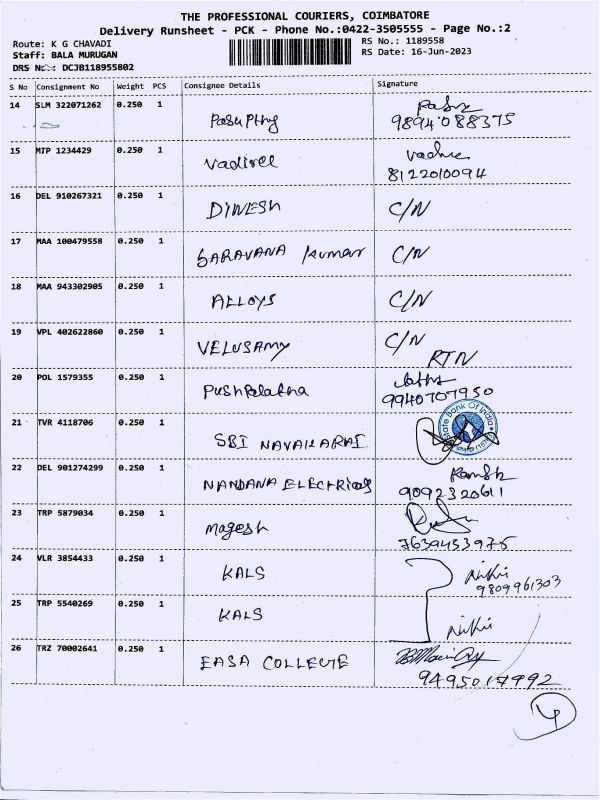 THE PROFESSIONAL COURIERS, COIMBATORE
Delivery Runsheet - PCK - Phone No.:0422-3505555 - Page No.:2
Route: K G CHAVADI RS No.: 1189558
Staff: BALA MURUGAN RS Date: 16-Jun-2023
DRS No: DCJB118955802
S No Consignment No Weight PCS Consignee Details Signature
14 SLM 322071262 0.250 1 Pasupthy
9894088375
15 MTP 1234429 0.250 1 Vadivel
8122010094
16 DEL 910267321 0.250 1 DINESH C/N
17 MAA 100479558 0.250 1 SARAVANA kumar C/N
18 MAA 943302905 0.250 1 ALLOYS C/N
19 VPL 402622860 0.250 1 VELUSAMY C/N
RTN
20 POL 1579355 0.250 1 Pushpalatha
9940707950
21 TVR 4118706 0.250 1 SBI NAVAKARAI State Bank Of India
22 DEL 901274299 0.250 1 NANDANA ELECTRICALS
9092320611
23 TRP 5879034 0.250 1 Magesh
7639453975
24 VLR 3854433 0.250 1 KALS Nikii
9809961303
25 TRP 5540269 0.250 1 KALS Nikii
26 TRZ 70002641 0.250 1 EASA COLLEGE